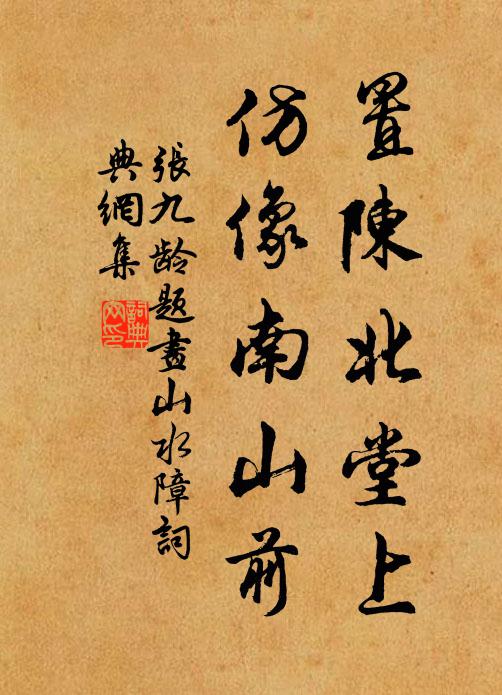 置陳北堂上
仿像南山前
張九齡題畫山水障詞
典網集
詞典
网印